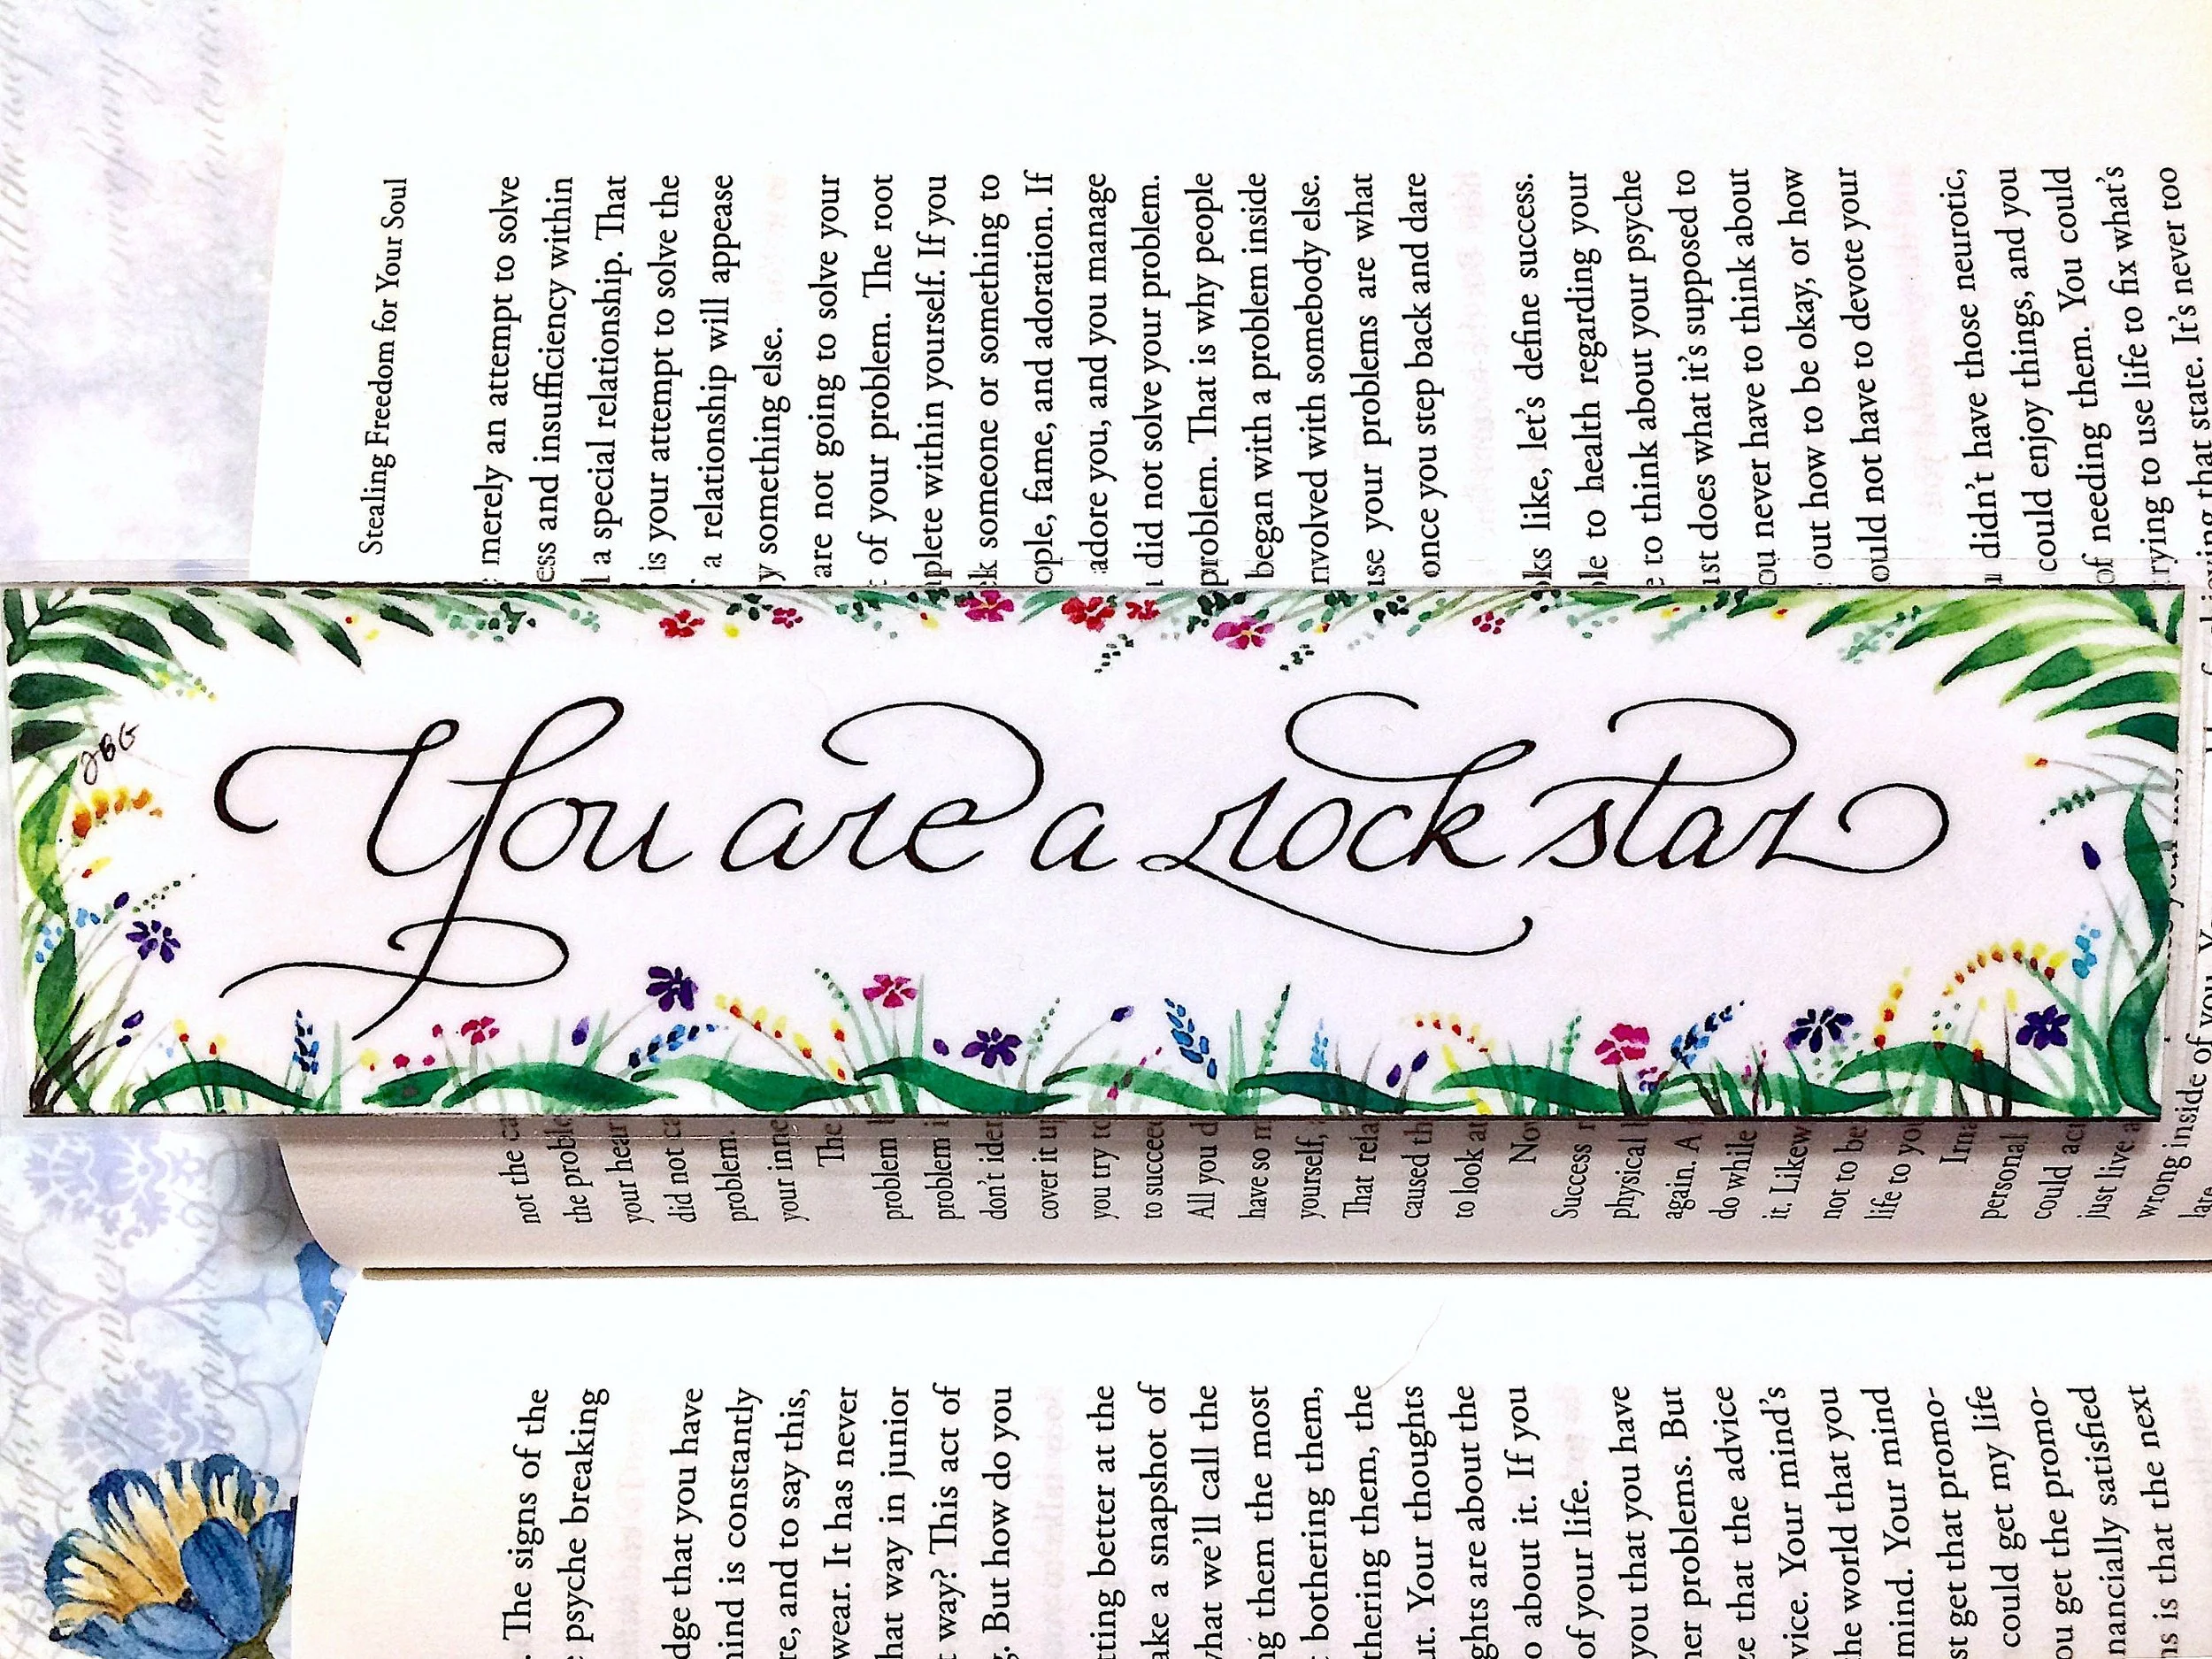 You are a rock star
JBG
Stealing Freedom for Your Soul
not the merely an attempt to solve
the and insufficiency within
your a special relationship. That
did not is your attempt to solve the
problem. a relationship will appease
your something else.
The are not going to solve your
problem of your problem. The root
problem within yourself. If you
don't someone or something to
cover it up fame, and adoration. If
you try to adore you, and you manage
to succeed did not solve your problem.
All you problem. That is why people
have so began with a problem inside
yourself, involved with somebody else.
That your problems are what
caused once you step back and dare
to look at
Now like, let's define success.
Success to health regarding your
physical to think about your psyche
again. A just does what it's supposed to
do while you never have to think about
it. out how to be okay, or how
not to be would not have to devote your
life to you
didn't have those neurotic,
personal could enjoy things, and you
could of needing them. You could
just live trying to use life to fix what's
wrong inside of you. that state. It's never too
late.
The signs of the
psyche breaking
that you have
mind is constantly
and to say this,
wear. It has never
that way in junior
way? This act of
But how do you
getting better at the
take a snapshot of
what we'll call the
them the most
bothering them,
bothering them, the
Your thoughts
are about the
about it. If you
of your life.
you that you have
problems. But
that the advice
Your mind's
the world that you
mind. Your mind
get that promo-
could get my life
you get the promo-
financially satisfied
is that the next